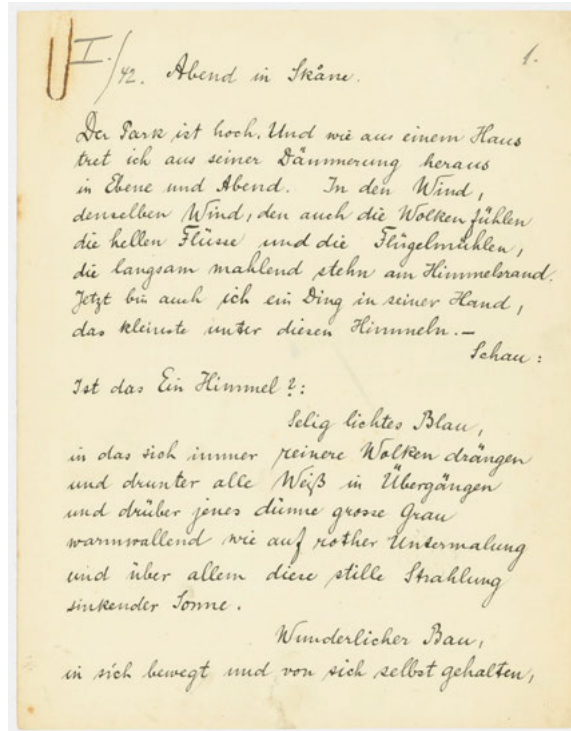 I./42. Abend in Skåne. 1.
Der Park ist hoch. Und wie aus einem Haus
tret ich aus seiner Dämmerung heraus
in Ebene und Abend. In den Wind,
denselben Wind, den auch die Wolken fühlen
die hellen Flüsse und die Flügelmühlen,
die langsam mahlend stehn am Himmelsrand.
Jetzt bin auch ich ein Ding in seiner Hand,
das kleinste unter diesen Himmeln.—
Schau:
Ist das Ein Himmel?:
Selig lichtes Blau,
in das sich immer reinere Wolken drängen
und drunter alle Weiß in Übergängen
und drüber jenes dünne grosse Grau
warmwallend wie auf rother Untermalung
und über allem diese stille Strahlung
sinkender Sonne.
Wunderlicher Bau,
in sich bewegt und von sich selbst gehalten,